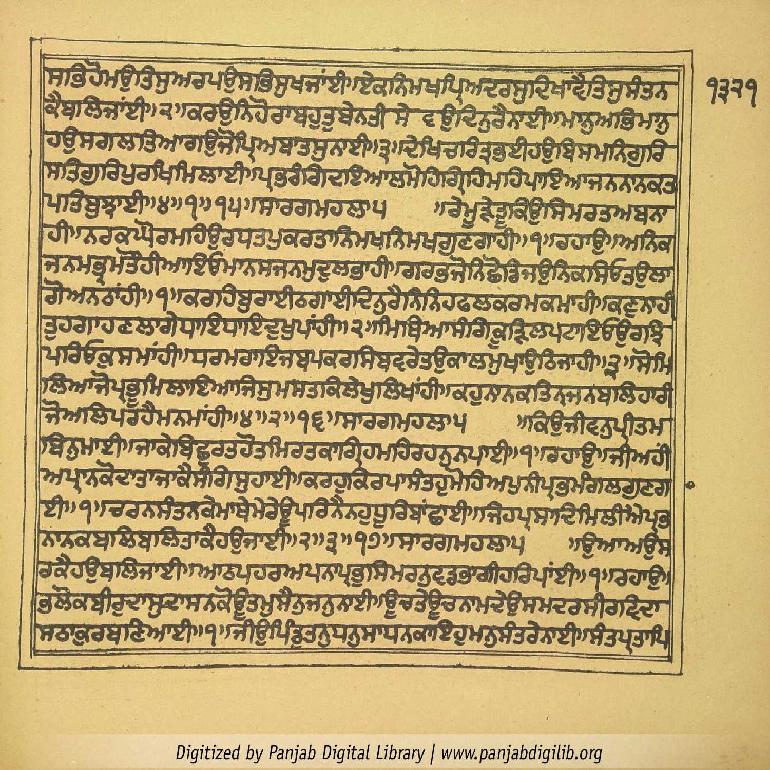 ਸਭਿਹੋਮਉਤਿਸੁਅਰਪਉਸਭਿਸੁਖਜਾਂਈ॥ਏਕਨਿਮਖਪ੍ਰਿਅਦਰਸੁਦਿਖਾਵੈਤਿਸੁਸੰਤਨ
ਕੈਬਲਿਜਾਂਈ॥੨॥ਕਰਉਨਿਹੋਰਾਬਹੁਤੁਬੇਨਤੀ ਸੇਵਉਦਿਨੁਰੈਨਾਈ॥ਮਾਨੁਅਭਿਮਾਨੁ
ਹਉਸਗਲਤਿਆਗਉਜੋਪ੍ਰਿਅਬਾਤਸੁਨਾਈ॥੩॥ਦੇਖਿਚਰਿਤ੍ਰਭਈਹਉਬਿਸਮਨਿਗੁਰਿ
ਸਤਿਗੁਰਿਪੁਰਖਿਮਿਲਾਈ॥ਪ੍ਰਭਰੰਗਿਦਇਆਲਮੋਹਿਗ੍ਰਿਹਮਹਿਪਾਇਆਜਨਨਾਨਕਤ
ਪਤਿਬੁਝਾਈ॥੪॥੧॥੧੫॥ਸਾਰਗਮਹਲਾ੫ ॥ਰੇਮੂੜ੍ਹੇਤੂਕਿਉਸਿਮਰਤਅਬਨਾ
ਹੀ॥ਨਰਕਘੋਰਮਹਿਉਰਧਤਪੁਕਰਤਾਨਿਮਖਨਿਮਖਗੁਣਗਾਂਹੀ॥੧॥ਰਹਾਉ॥ਅਨਿਕ
ਜਨਮਭ੍ਰਮਤੌਹੀਆਇਓਮਾਨਸਜਨਮੁਦੁਲਭਾਹੀ॥ਗਰਭਜੋਨਿਛੋਡਿਜਉਨਿਕਸਿਓਤਉਲਾ
ਗੋਅਨਠਾਂਹੀ॥੧॥ਕਰਹਿਬੁਰਾਈਠਗਾਈਦਿਨੁਰੈਨਿਨਿਹਫਲਕਰਮਕਮਾਹੀ॥ਕਣੁਨਾਹੀ
ਤੁਹਗਾਹਣਲਾਗੇਧਾਇਧਾਇਦੁਖੁਪਾਂਹੀ॥੨॥ਮਿਥਿਆਸੰਗਿਕੂੜਿਲਪਟਾਇਓਉਰਝਿ
ਪਰਿਓਕੁਸਮਾਂਹੀ॥ਧਰਮਰਾਇਜਬਪਕਰਸਿਬਵਰੇਤਉਕਾਲਮੁਖਾਉਠਿਜਾਹੀ॥੩॥ਸੋਮਿ
ਲਿਆਜੋਪ੍ਰਭੂਮਿਲਾਇਆਜਿਸੁਮਸਤਕਿਲੇਖੁਲਿਖਾਂਹੀ॥ਕਹੁਨਾਨਕਤਿਨਜਨਬਲਿਹਾਰੀ
ਜੋਅਲਿਪਰਹੈਮਨਮਾਂਹੀ॥੪॥੨॥੧੬॥ਸਾਰਗਮਹਲਾ੫ ॥ਕਿਉਜੀਵਨੁਪ੍ਰੀਤਮ
ਬਿਨੁਮਾਈ॥ਜਾਕੇਬਿਛੁਰਤਹੋਤਮਿਰਤਕਾਗ੍ਰਿਹਮਹਿਰਹਨੁਨਪਾਈ॥੧॥ਰਹਾਉ॥ਜੀਅਹੀ
ਅਪ੍ਰਾਨਕੋਦਾਤਾਜਾਕੈਸੰਗਿਸੁਹਾਈ॥ਕਰਹੁਕ੍ਰਿਪਾਸੰਤਹੁਮੋਹਿਅਪੁਨੀਪ੍ਰਭਮੰਗਲਗੁਣਗਾ
ਈ॥੧॥ਚਰਨਸੰਤਨਕੇਮਾਥੇਮੇਰੇਊਪਰਿਨੈਨਹੁਧੂਰਿਬਾਂਛਾਈ॥ਜਿਹਪ੍ਰਸਾਦਿਮਿਲੀਐਪ੍ਰਭ
ਨਾਨਕਬਲਿਬਲਿਤਾਕੈਹਉਜਾਈ॥੨॥੩॥੧੭॥ਸਾਰਗਮਹਲਾ੫ ॥ਉਆਅਉਸ
ਰਕੈਹਉਬਲਿਜਾਈ॥ਆਠਪਹਰਅਪਨਾਪ੍ਰਭੁਸਿਮਰਨੁਵਡਭਾਗੀਹਰਿਪਾਂਈ॥੧॥ਰਹਾਉ॥
ਭਲੋਕਬੀਰੁਦਾਸੁਦਾਸਨਕੋਊਤਮੁਸੈਨੁਜਨੁਨਾਈ॥ਊਚਤੇਊਚਨਾਮਦੇਉਸਮਦਰਸੀਰਵਿਦਾ
ਸਠਾਕੁਰਬਣਿਆਈ॥੧॥ਜੀਉਪਿੰਡੁਤਨੁਧਨੁਸਾਧਨਕਾਇਹੁਮਨੁਸੰਤਰੇਨਾਈ॥ਸੰਤਪ੍ਰਤਾਪਿ
੧੩੨੧
Digitized by Panjab Digital Library | www.panjabdigilib.org